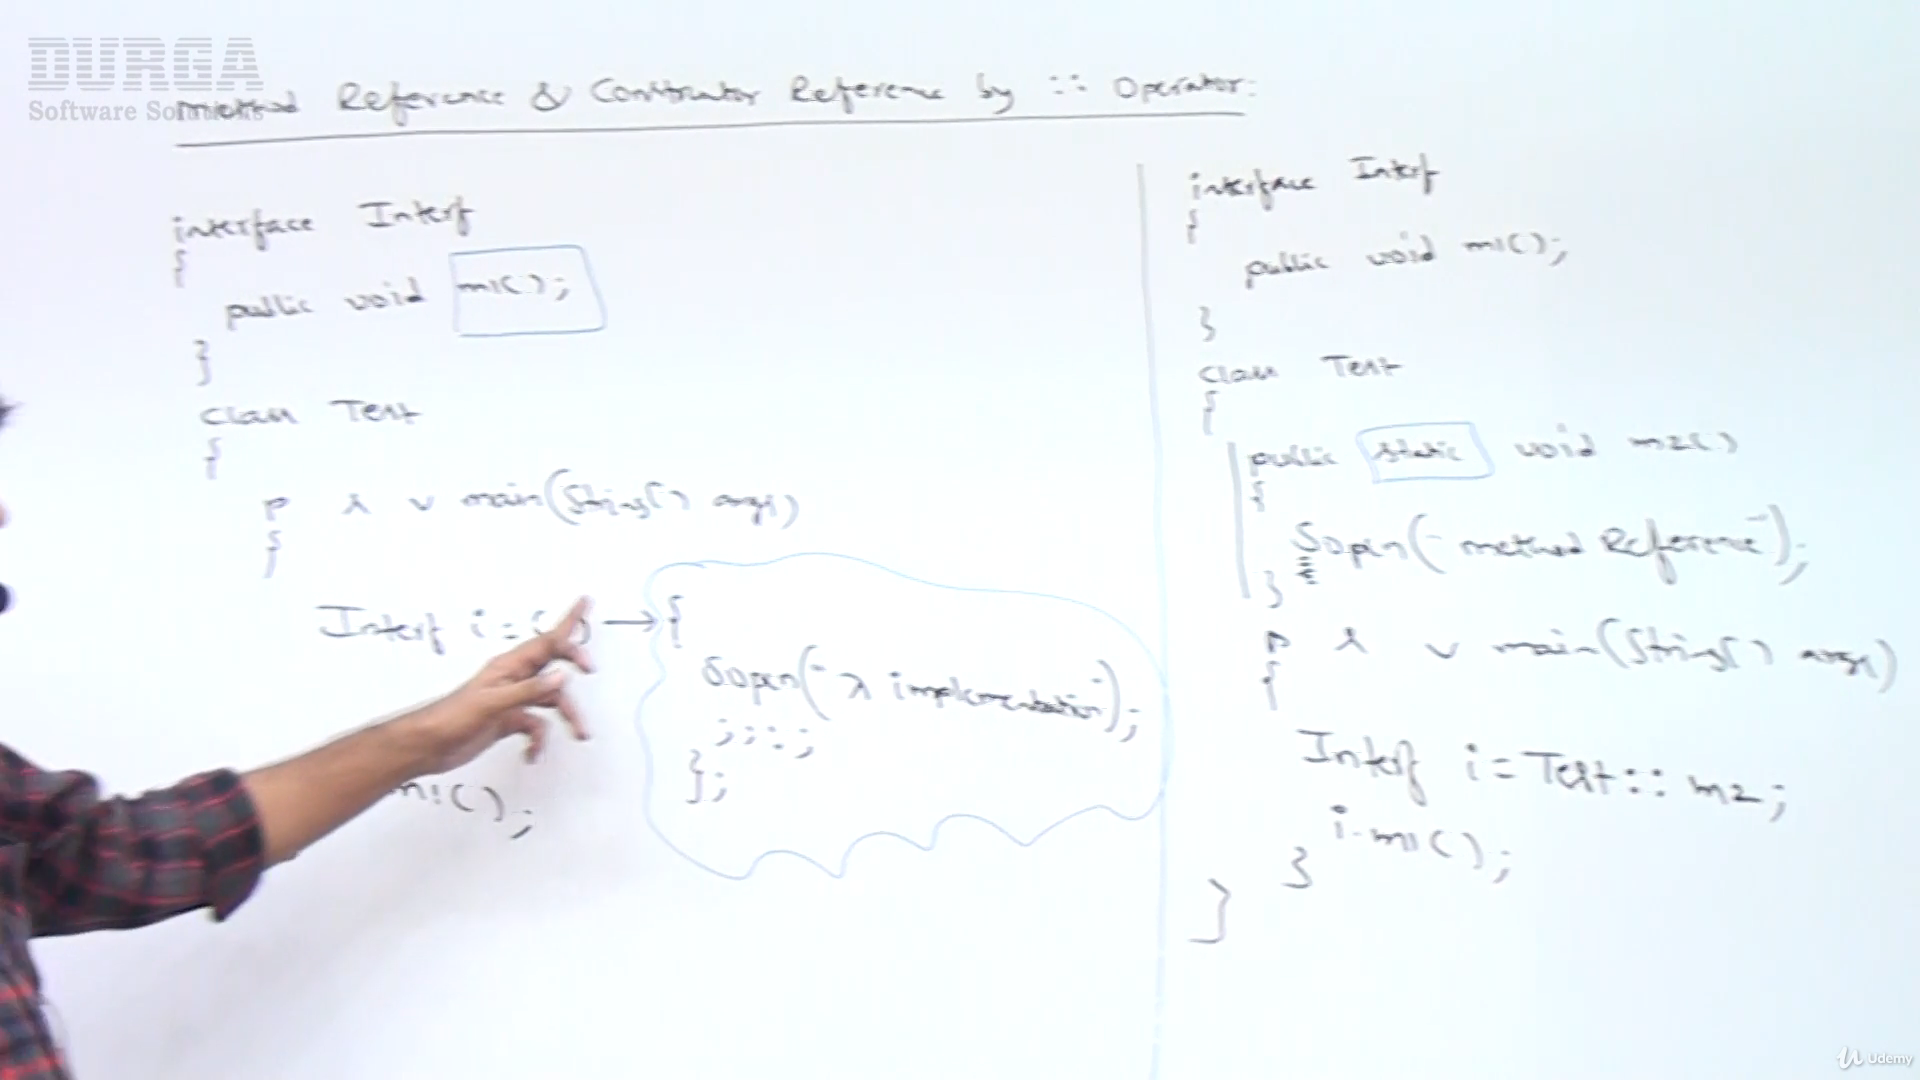 DURGA
Software Solutions
Method Reference & Constructor Reference by :: Operator:
interface Interf
{
public void m1();
}
class Test
{
p s v main(String[] args)
{
Interf i = () → {
Sopln("λ implementation");
;;:;
};
m1();
interface Interf
{
public void m1();
}
class Test
{
public static void m2()
{
Sopln("method Reference");
}
p s v main(String[] args)
{
Interf i = Test::m2;
i.m1();
}
}
Udemy